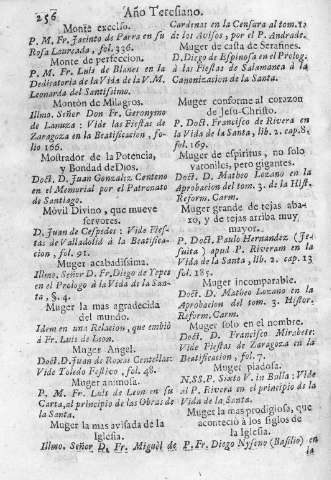 256
Año Teresiano.
Monte excelso.
P. M. Fr. Jacinto de Parra en su
Rosa Laureada, fol. 336.
Monte de perfeccion.
P. M. Fr. Luis de Blanes en la
Dedicatoria de la Vida de la V. M.
Leonarda del Santissimo.
Montòn de Milagros.
Illmo. Señor Don Fr. Geronymo
de Lanuza: Vide las Fiestas de
Zaragoza en la Beatificacion, fo-
lio 166.
Mostrador de la Potencia,
y Bondad de Dios.
Doct. D. Juan Gonzalez Centeno
en el Memorial por el Patronato
de Santiago.
Mòvil Divino, que mueve
fervores.
D. Juan de Cespedes: Vide Fies-
tas de Valladolid à la Beatifica-
cion, fol. 91.
Muger acabadissima.
Illmo. Señor D. Fr. Diego de Yepes
en el Prologo à la Vida de la San-
ta, §. 4.
Muger la mas agradecida
del mundo.
Idem en una Relacion, que embiò
à Fr. Luis de Leon.
Muger Angel.
Doct. D. Juan de Roxas Centellas:
Vide Toledo Festivo, fol. 48.
Muger animosa.
P. M. Fr. Luis de Leon en su
Carta, al principio de las Obras de
la Santa.
Muger la mas avisada de la
Iglesia.
Illmo. Señor D. Fr. Miguèl de
Cardenas en la Censura al tom. 12.
de los Avisos, por el P. Andrade.
Muger de casta de Serafines.
D. Diego de Espinosa en el Prolog.
à las Fiestas de Salamanca à la
Canonizacion de la Santa.
Muger conforme al corazon
de Jesu-Christo.
P. Doct. Francisco de Rivera en
la Vida de la Santa, lib. 2. cap. 8,
fol. 169.
Muger de espiritus, no solo
varoniles, pero gigantes.
Doct. D. Matheo Lozano en la
Aprobacion del tom. 3. de la Hist.
Reform. Carm.
Muger grande de tejas aba-
xo, y de tejas arriba muy
mayor.
P. Doct. Paulo Hernandez (Je-
suita) apud P. Riveram en la
Vida de la Santa, lib. 2. cap. 13
fol. 185.
Muger incomparable.
Doct. D. Matheo Lozano en la
Aprobacion del tom. 3. Histor.
Reform. Carm.
Muger solo en el nombre.
Doct. D. Francisco Mirabete:
Vide Fiestas de Zaragoza en la
Beatificacion, fol. 7.
Muger piadosa.
N. SS. P. Sixto V. in Bulla: Vide
al P. Rivera en el principio de la
Vida de la Santa.
Muger la mas prodigiosa, que
aconteciò à los siglos de
la Iglesia.
P. Fr. Diego Nyseno (Basilio) en